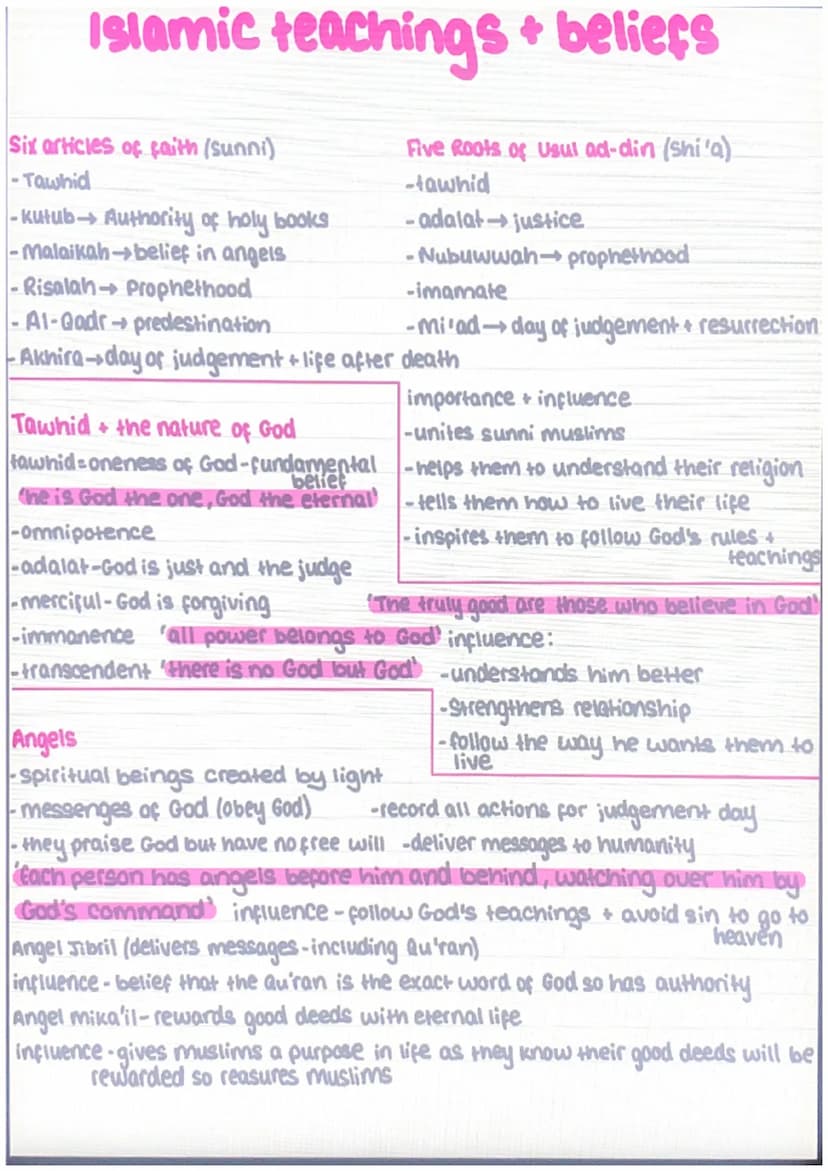 Islamic teachings + beliefs
Six articles of faith (sunni)
- Tawhid
- Kutub → Authority of holy books
- Malaikah → belief in angels
- Risalah → Prophethood
- Al-Qadr → predestination
- Akhira → day of judgement + life after death
Five Roots of Usul ad-din (Shi'a)
- tawhid
- adalat → justice
- Nubuwwah → prophethood
- imamate
- Mi'ad → day of judgement + resurrection
importance + influence
- unites sunni muslims
- helps them to understand their religion
- tells them how to live their life
- inspires them to follow God's rules +
teachings
Tawhid + the nature of God
tawhid = oneness of God - fundamental
belief
'he is God the one, God the eternal'
- omnipotence
- adalat - God is just and the judge
- merciful - God is forgiving
- immanence 'all power belongs to God'
- transcendent 'there is no God but God'
'The truly good are those who believe in God'
influence:
- understands him better
- Strengthens relationship
- follow the way he wants them to
live
Angels
- spiritual beings created by light
- messenges of God (obey God) - record all actions for judgement day
- they praise God but have no free will - deliver messages to humanity
'Each person has angels before him and behind, watching over him by
God's command' influence - follow God's teachings + avoid sin to go to
heaven
Angel Jibril (delivers messages - including Qu'ran)
influence - belief that the Qu'ran is the exact word of God so has authority
Angel mika'il - rewards good deeds with eternal life
influence - gives muslims a purpose in life as they know their good deeds will be
rewarded so reasures muslims